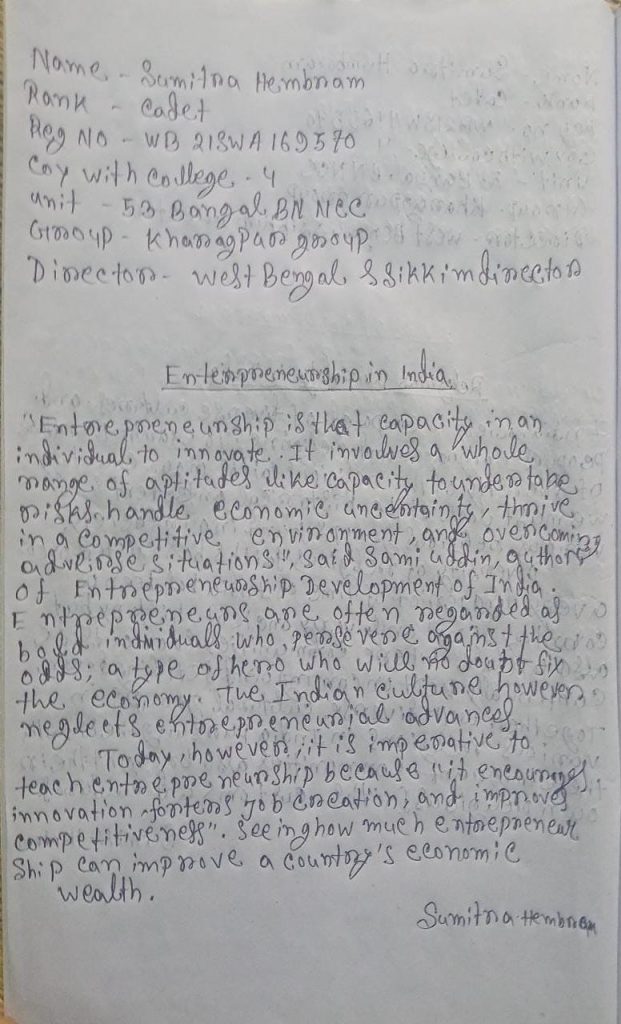 Name - Sumitra Hembram
Rank - Cadet
Reg NO - WB 21SWA 169570
Coy with college - 4
unit - 53 Bangal BN NCC
Group - Kharagpur group
Director - West Bengal & Sikkim director
Enterpreneurship in India
"Entrepreneurship is that capacity in an
individual to innovate. It involves a whole
range of aptitudes like capacity to undertake
risks, handle economic uncertainty, thrive
in a competitive environment, and overcoming
adverse situations", said Sami uddin, author
of Entrepreneurship Development of India.
Entrepreneurs are often regarded as
bold individuals who persevere against the
odds; a type of hero who will no doubt fix
the economy. The Indian culture however
neglects entrepreneurial advances.
Today, however, it is imperative to
teach entrepreneurship because "it encourages
innovation, fosters job creation, and improves
competitiveness". Seeing how much entrepreneur
ship can improve a country's economic
wealth.
Sumitra Hembram